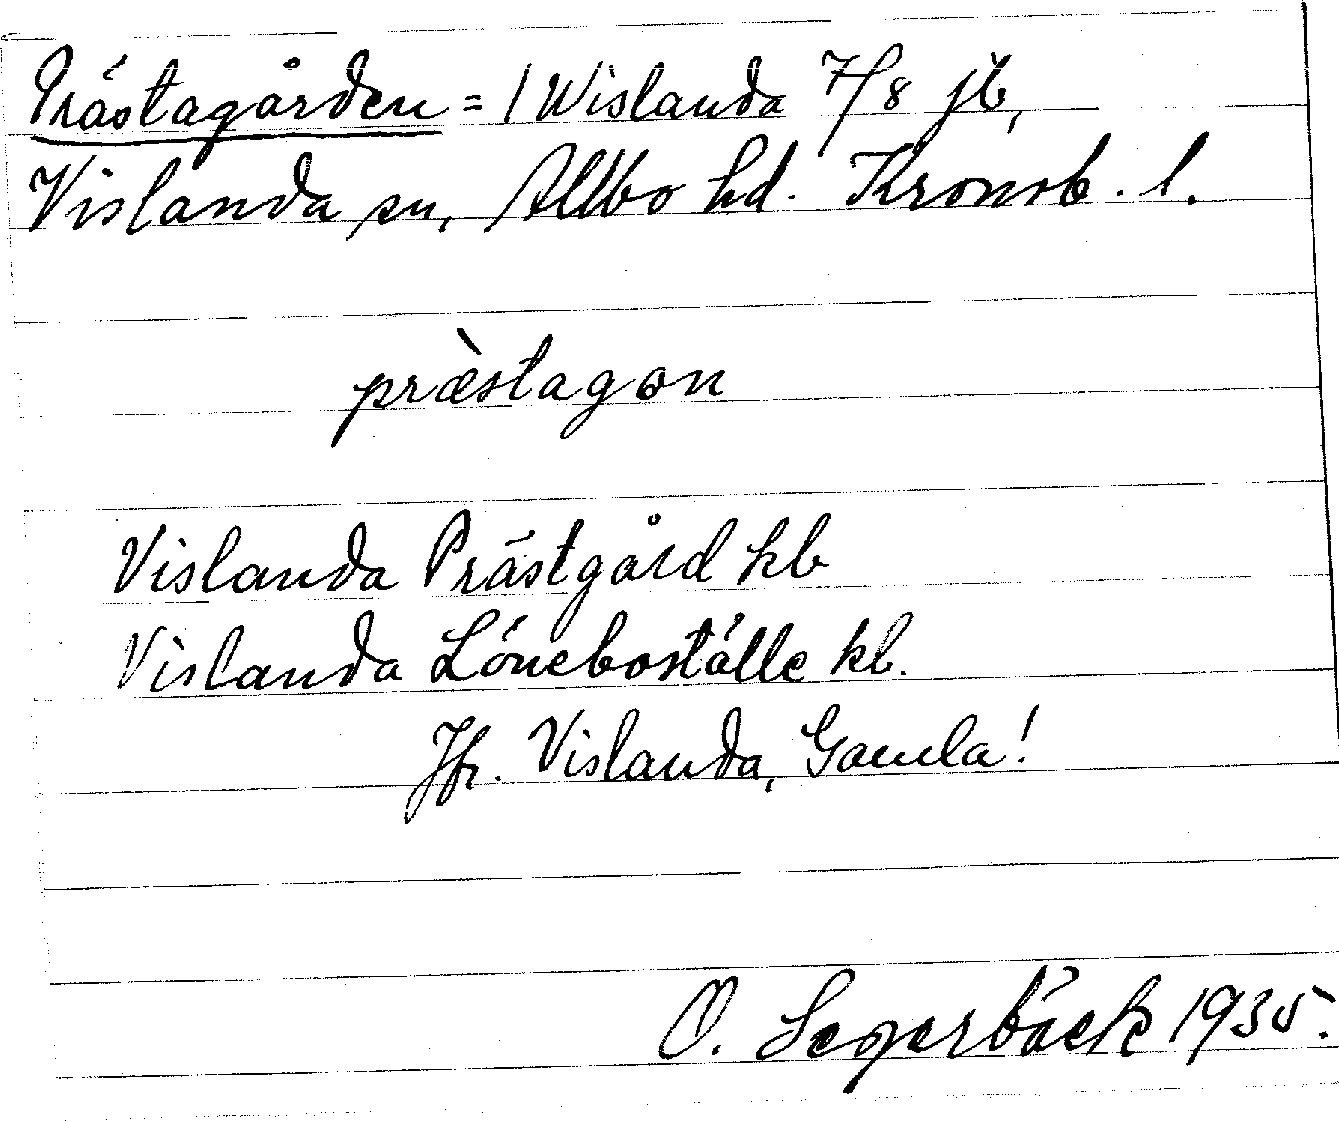 Prästagården = 1 Wislanda 7/8 jb,
Vislanda sn, Allbo hd. Kronob. l.
præ̀stagon
Vislanda Prästgård kb
Vislanda Löneboställe kb.
Jfr. Vislanda, Gamla!
O. Segerbäck 1935.